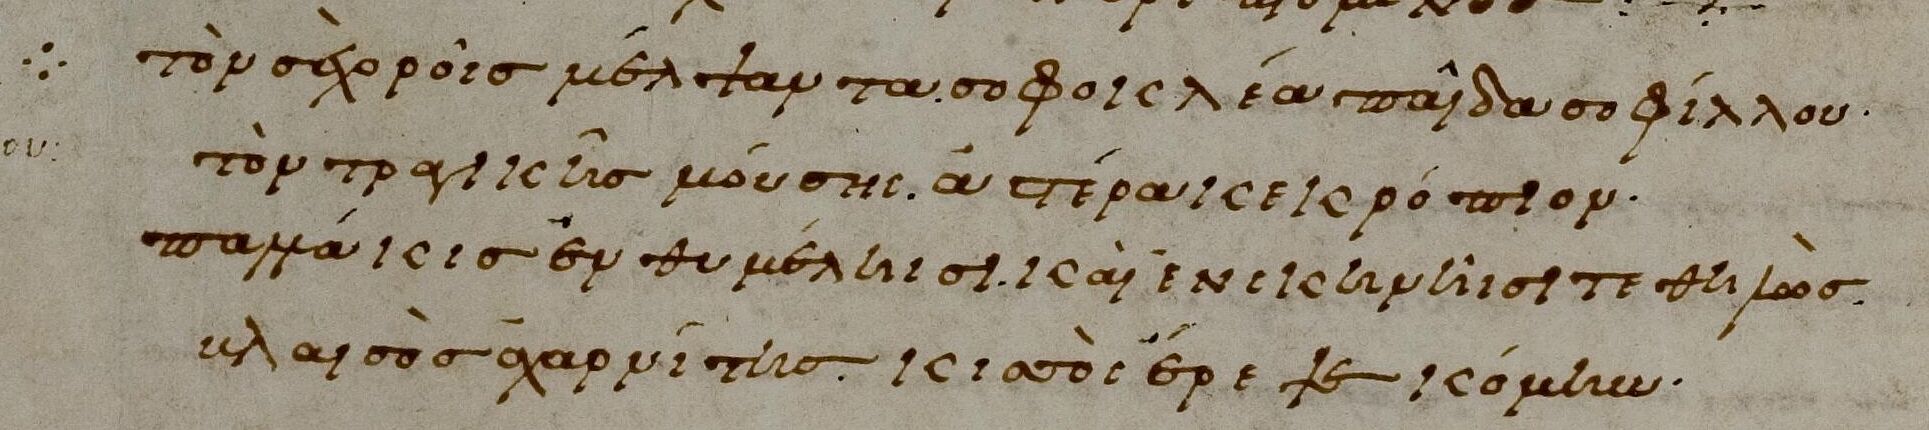 τὸν σὲ χοροῖς μέλψαντα σοφοκλέα παῖδα σοφίλλου.
τὸν τραγικῆς μούσης. ἀστέρα κεκρόπιον.
πολλάκις ἐν θυμέλησι. καὶ ἐν σκηνῆσι τεθηλὼς.
βλαισὸς ἀχαρνίτης. κισσὸς ἔρεψε κόμην.